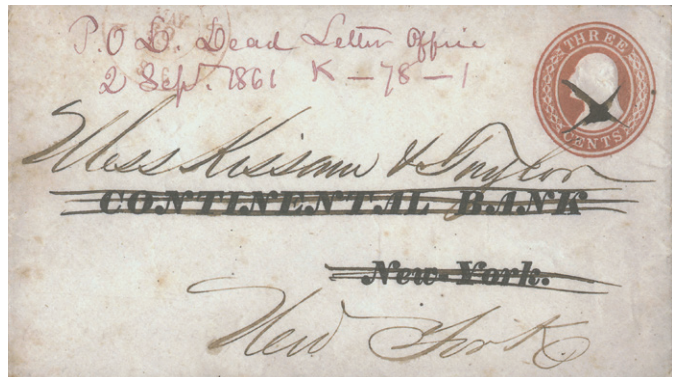 P.O D. Dead Letter Office
2 Sept. 1861 K-78-1
THREE
CENTS
Mess Kissam & Taylor
CONTINENTAL BANK
New-York.
New York.